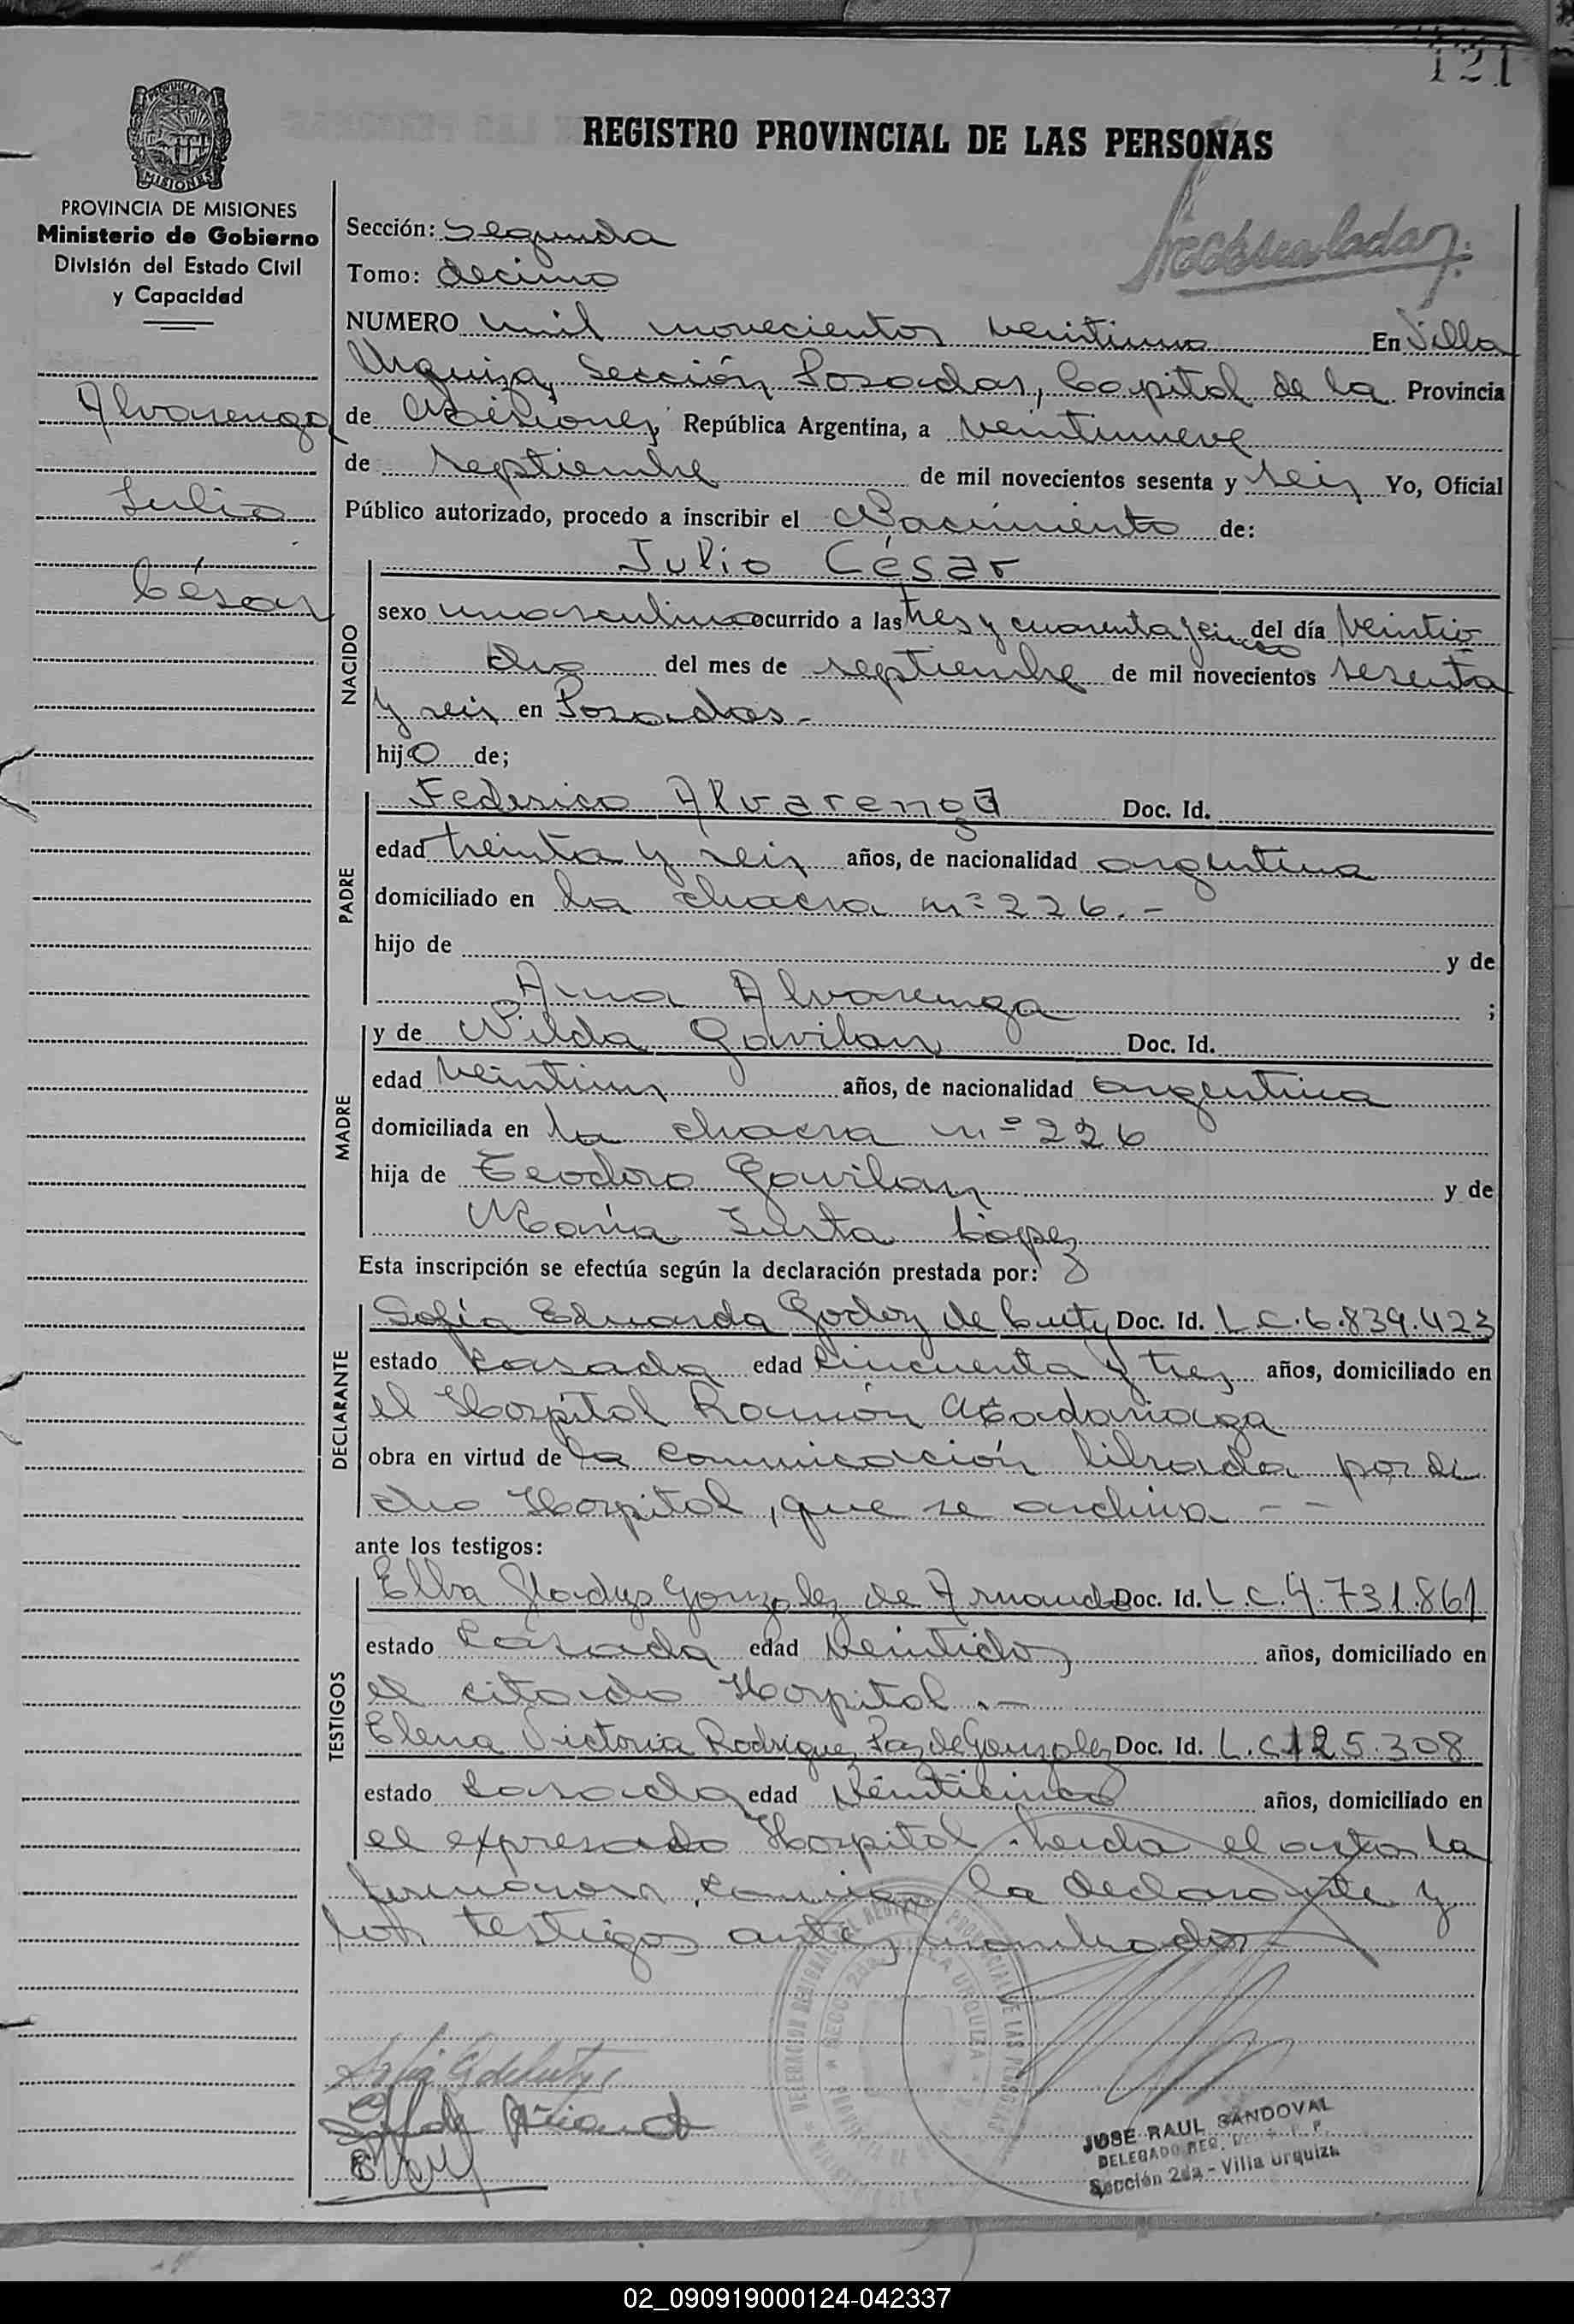 121
PROVINCIA DE MISIONES
REGISTRO PROVINCIAL DE LAS PERSONAS
PROVINCIA DE MISIONES
Ministerio de Gobierno
División del Estado Civil
y Capacidad
Alvarenga
Julio
César
Sección: Segunda
Tomo: decimo
NUMERO mil novecientos veintiuno En Villa
Urquiza, Sección Posadas, Capital de la Provincia
de Misiones, República Argentina, a veintinueve
de septiembre de mil novecientos sesenta y seis Yo, Oficial
Público autorizado, procedo a inscribir el Nacimiento de:
NACIDO
Julio César
sexo masculino ocurrido a las tres y cuarenta y cinco del día veintio
cho del mes de septiembre de mil novecientos sesenta
y seis en Posadas.-
hijo de;
PADRE
Federico Alvarenga Doc. Id.
edad treinta y seis años, de nacionalidad argentina
domiciliado en la chacra nº 226.-
hijo de y de
Ana Alvarenga ;
MADRE
y de Nilda Gavilan Doc. Id.
edad años, de nacionalidad argentina
domiciliada en la chacra nº 226
hija de Teodoro Gavilan y de
María Justa López
Esta inscripción se efectúa según la declaración prestada por:
DECLARANTE
Sofía Eduarda Godoy de Doc. Id. L.C.6.839.423
estado casada edad cincuenta y tres años, domiciliado en
el Hospital Ramón Madariaga
obra en virtud de la comunicación librada por di
cho Hospital, que se archiva - -
ante los testigos:
TESTIGOS
Elba Gladys Gonzalez de Doc. Id. L.C.4.731.861
estado casada edad veintidos años, domiciliado en
el citado Hospital.-
Elena Victoria Rodriguez Paz de Gonzalez Doc. Id. L.C.125.308
estado casada edad veinticinco años, domiciliado en
el expresado Hospital. Leida el acta la
firmaron conmigo la declarante y
los testigos antes nombrados
JOSE RAUL SANDOVAL
DELEGADO REG.
Sección 2da - Villa Urquiza
02_090919000124-042337